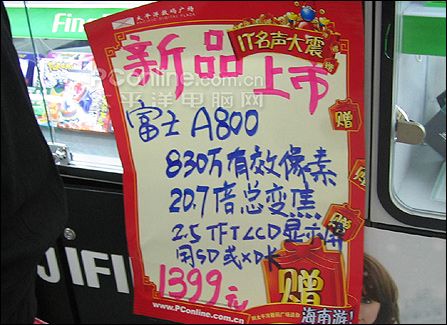 太平洋数码广场
PACIFIC DIGITAL PLAZA
IT名声大震
新品
上市
PConline.com.cn
太平洋电脑网
富士A800
赠
830万有效像素
20.7倍总变焦
赠
2.5 TFT LCD 显示屏
用SD或XD卡
赠
1399元
www.PConline.com.cn
海南游!
Fin
JIFI